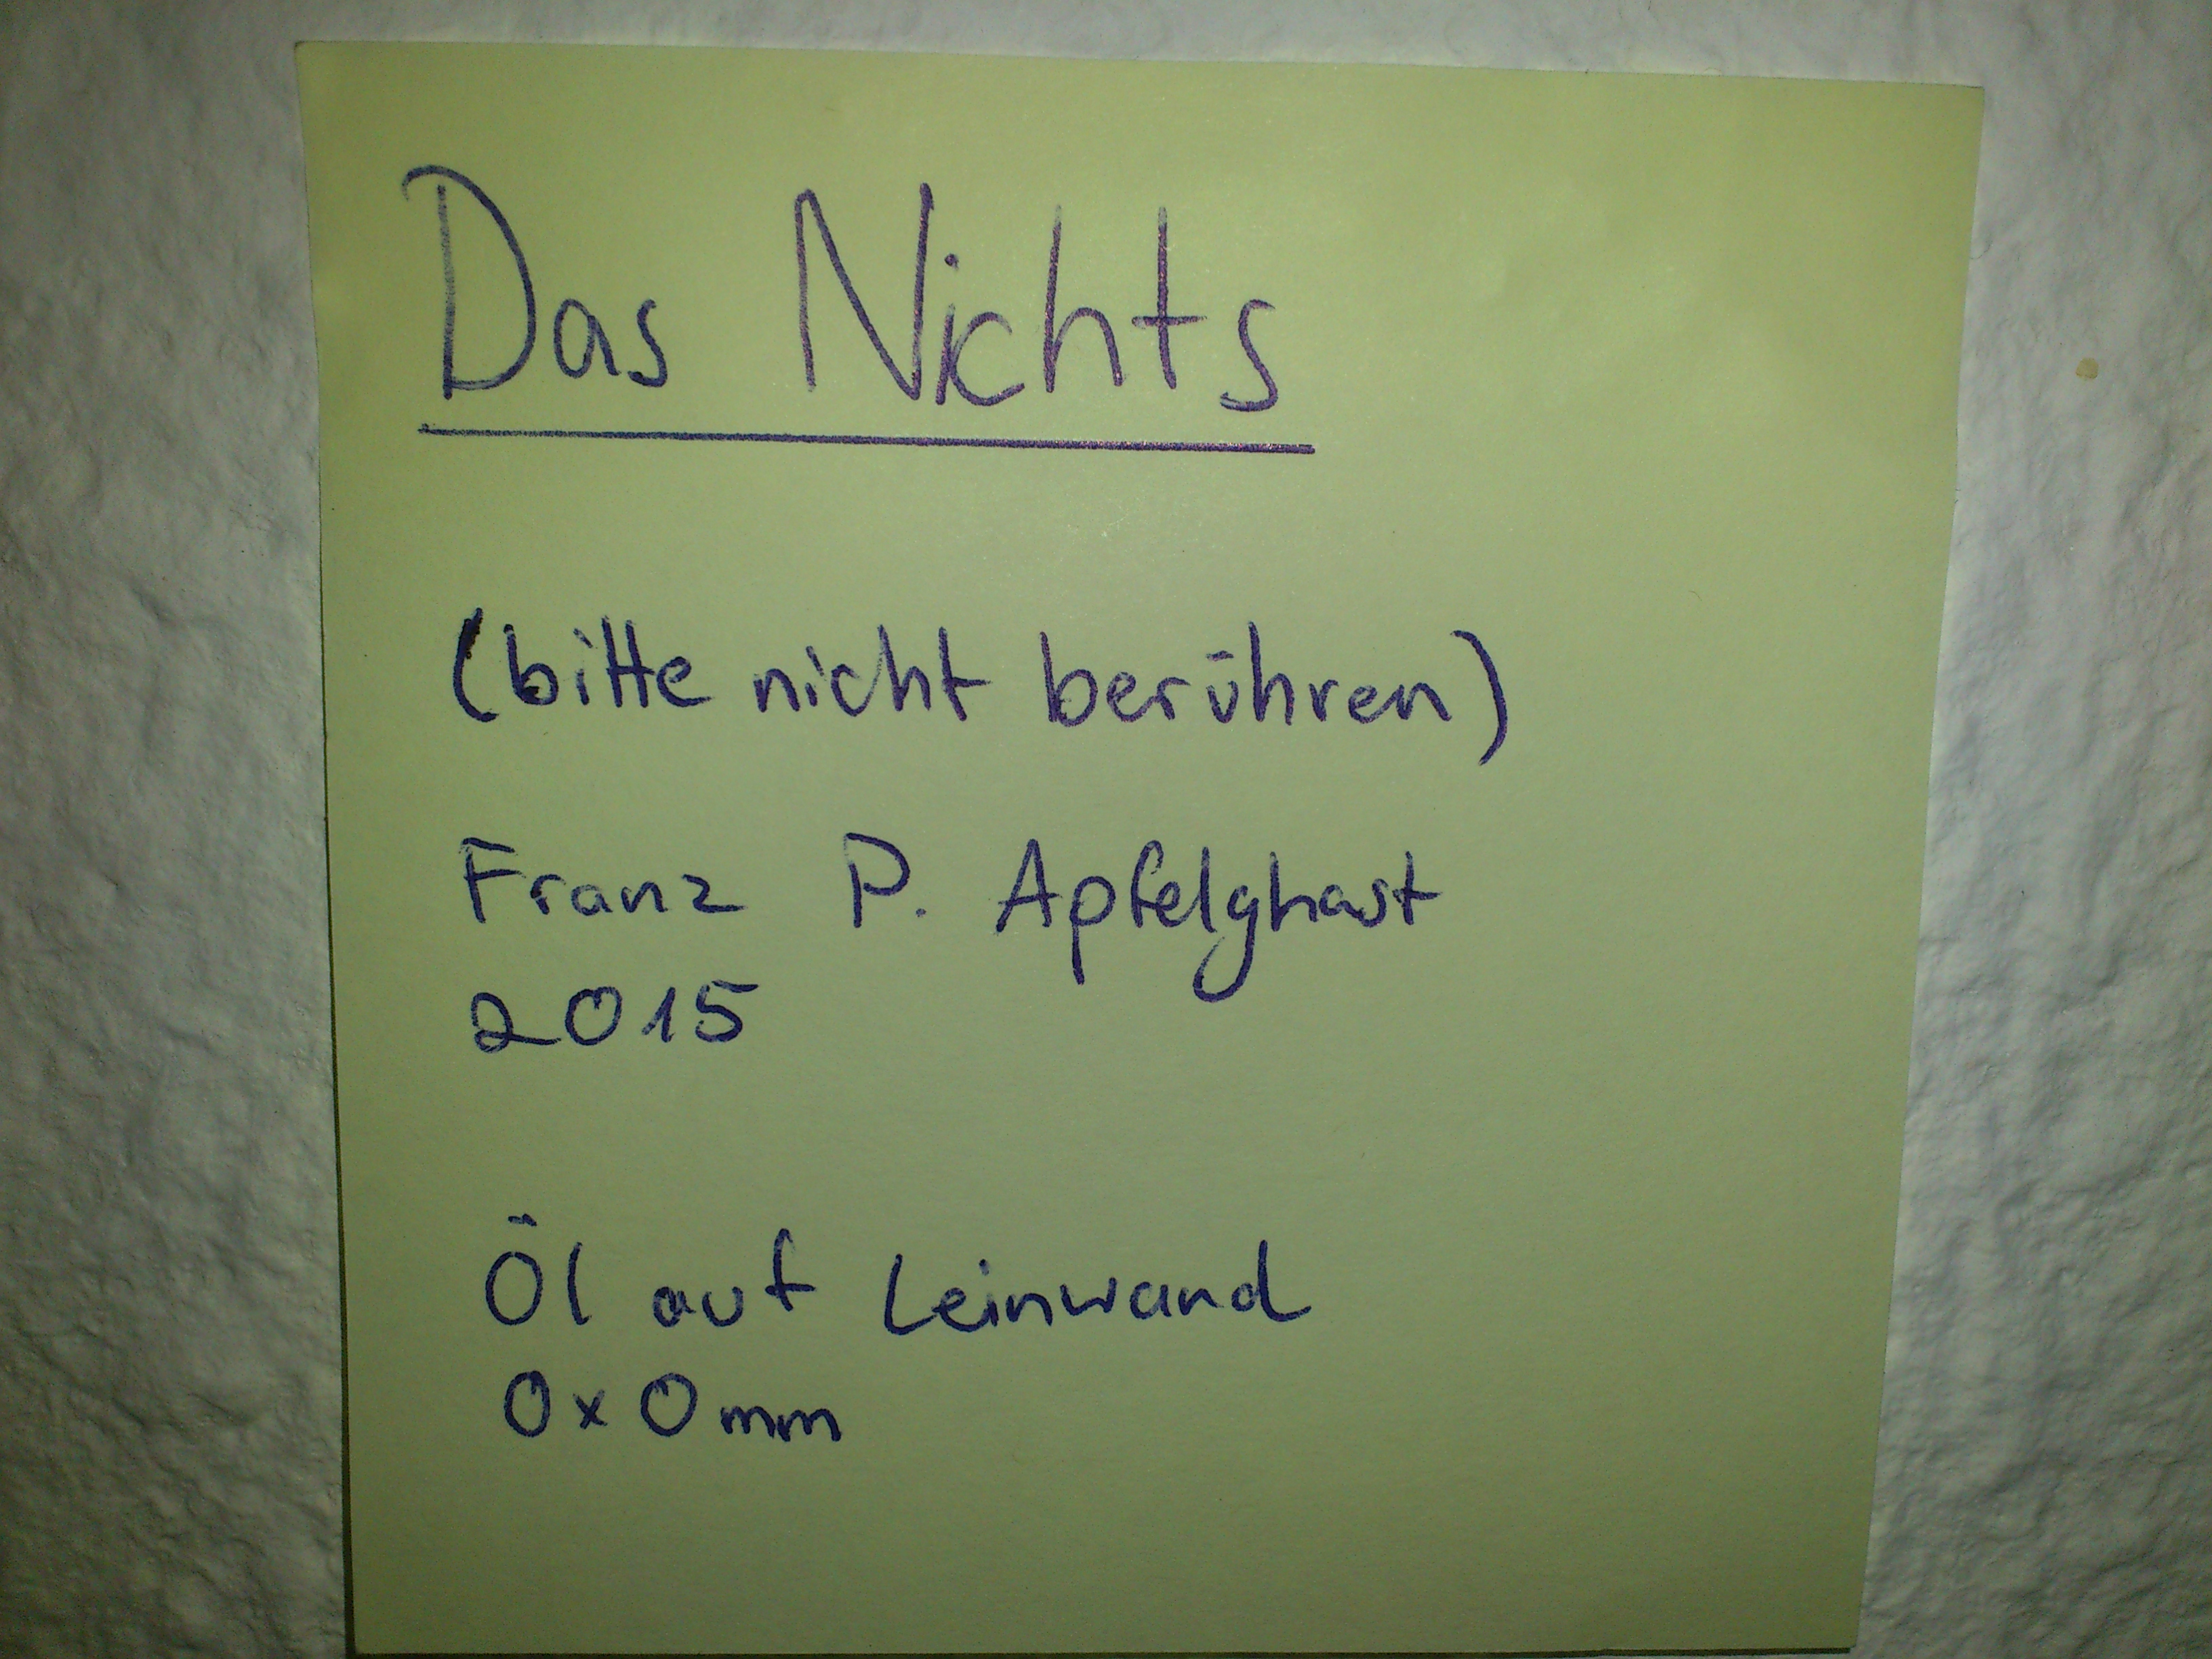 Das Nichts
(bitte nicht berühren)
Franz P. Apfelghast
2015
Öl auf Leinwand
0x0mm